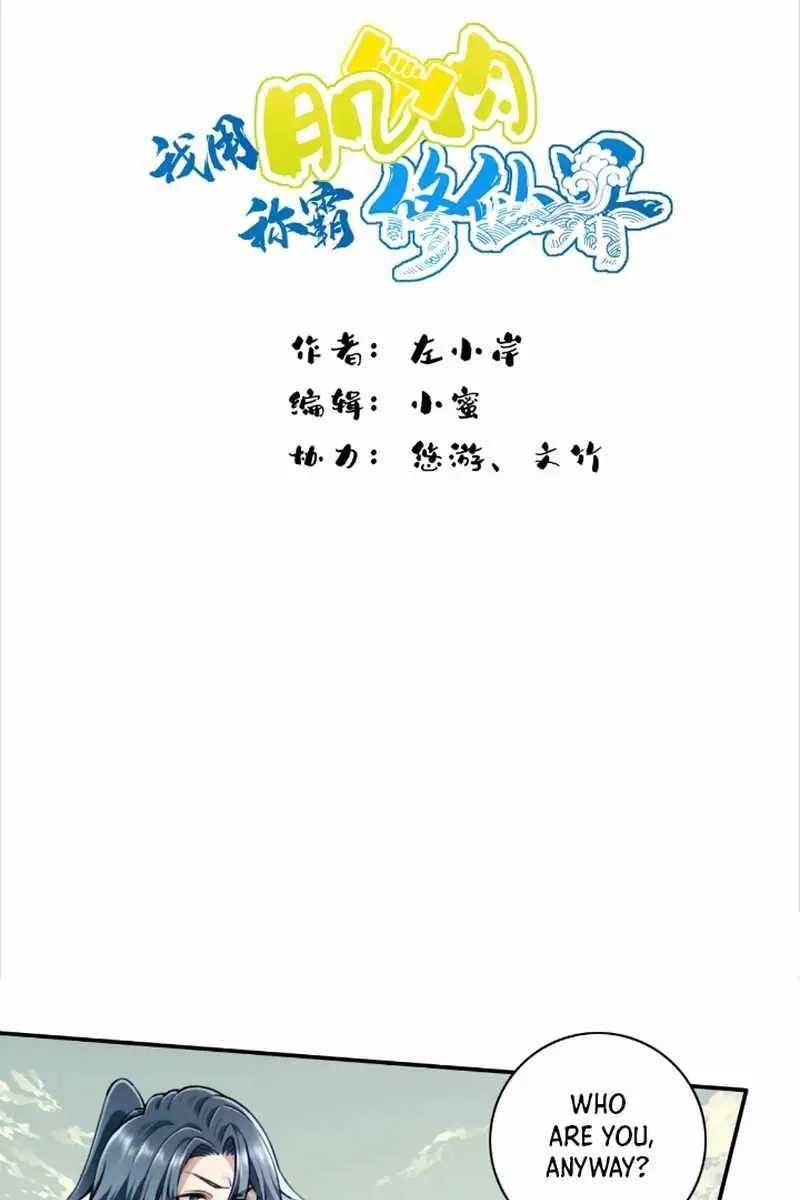 我用肌肉
称霸修仙界
作者：左小岸
编辑：小蜜
协力：悠游、文竹
WHO
ARE YOU,
ANYWAY?